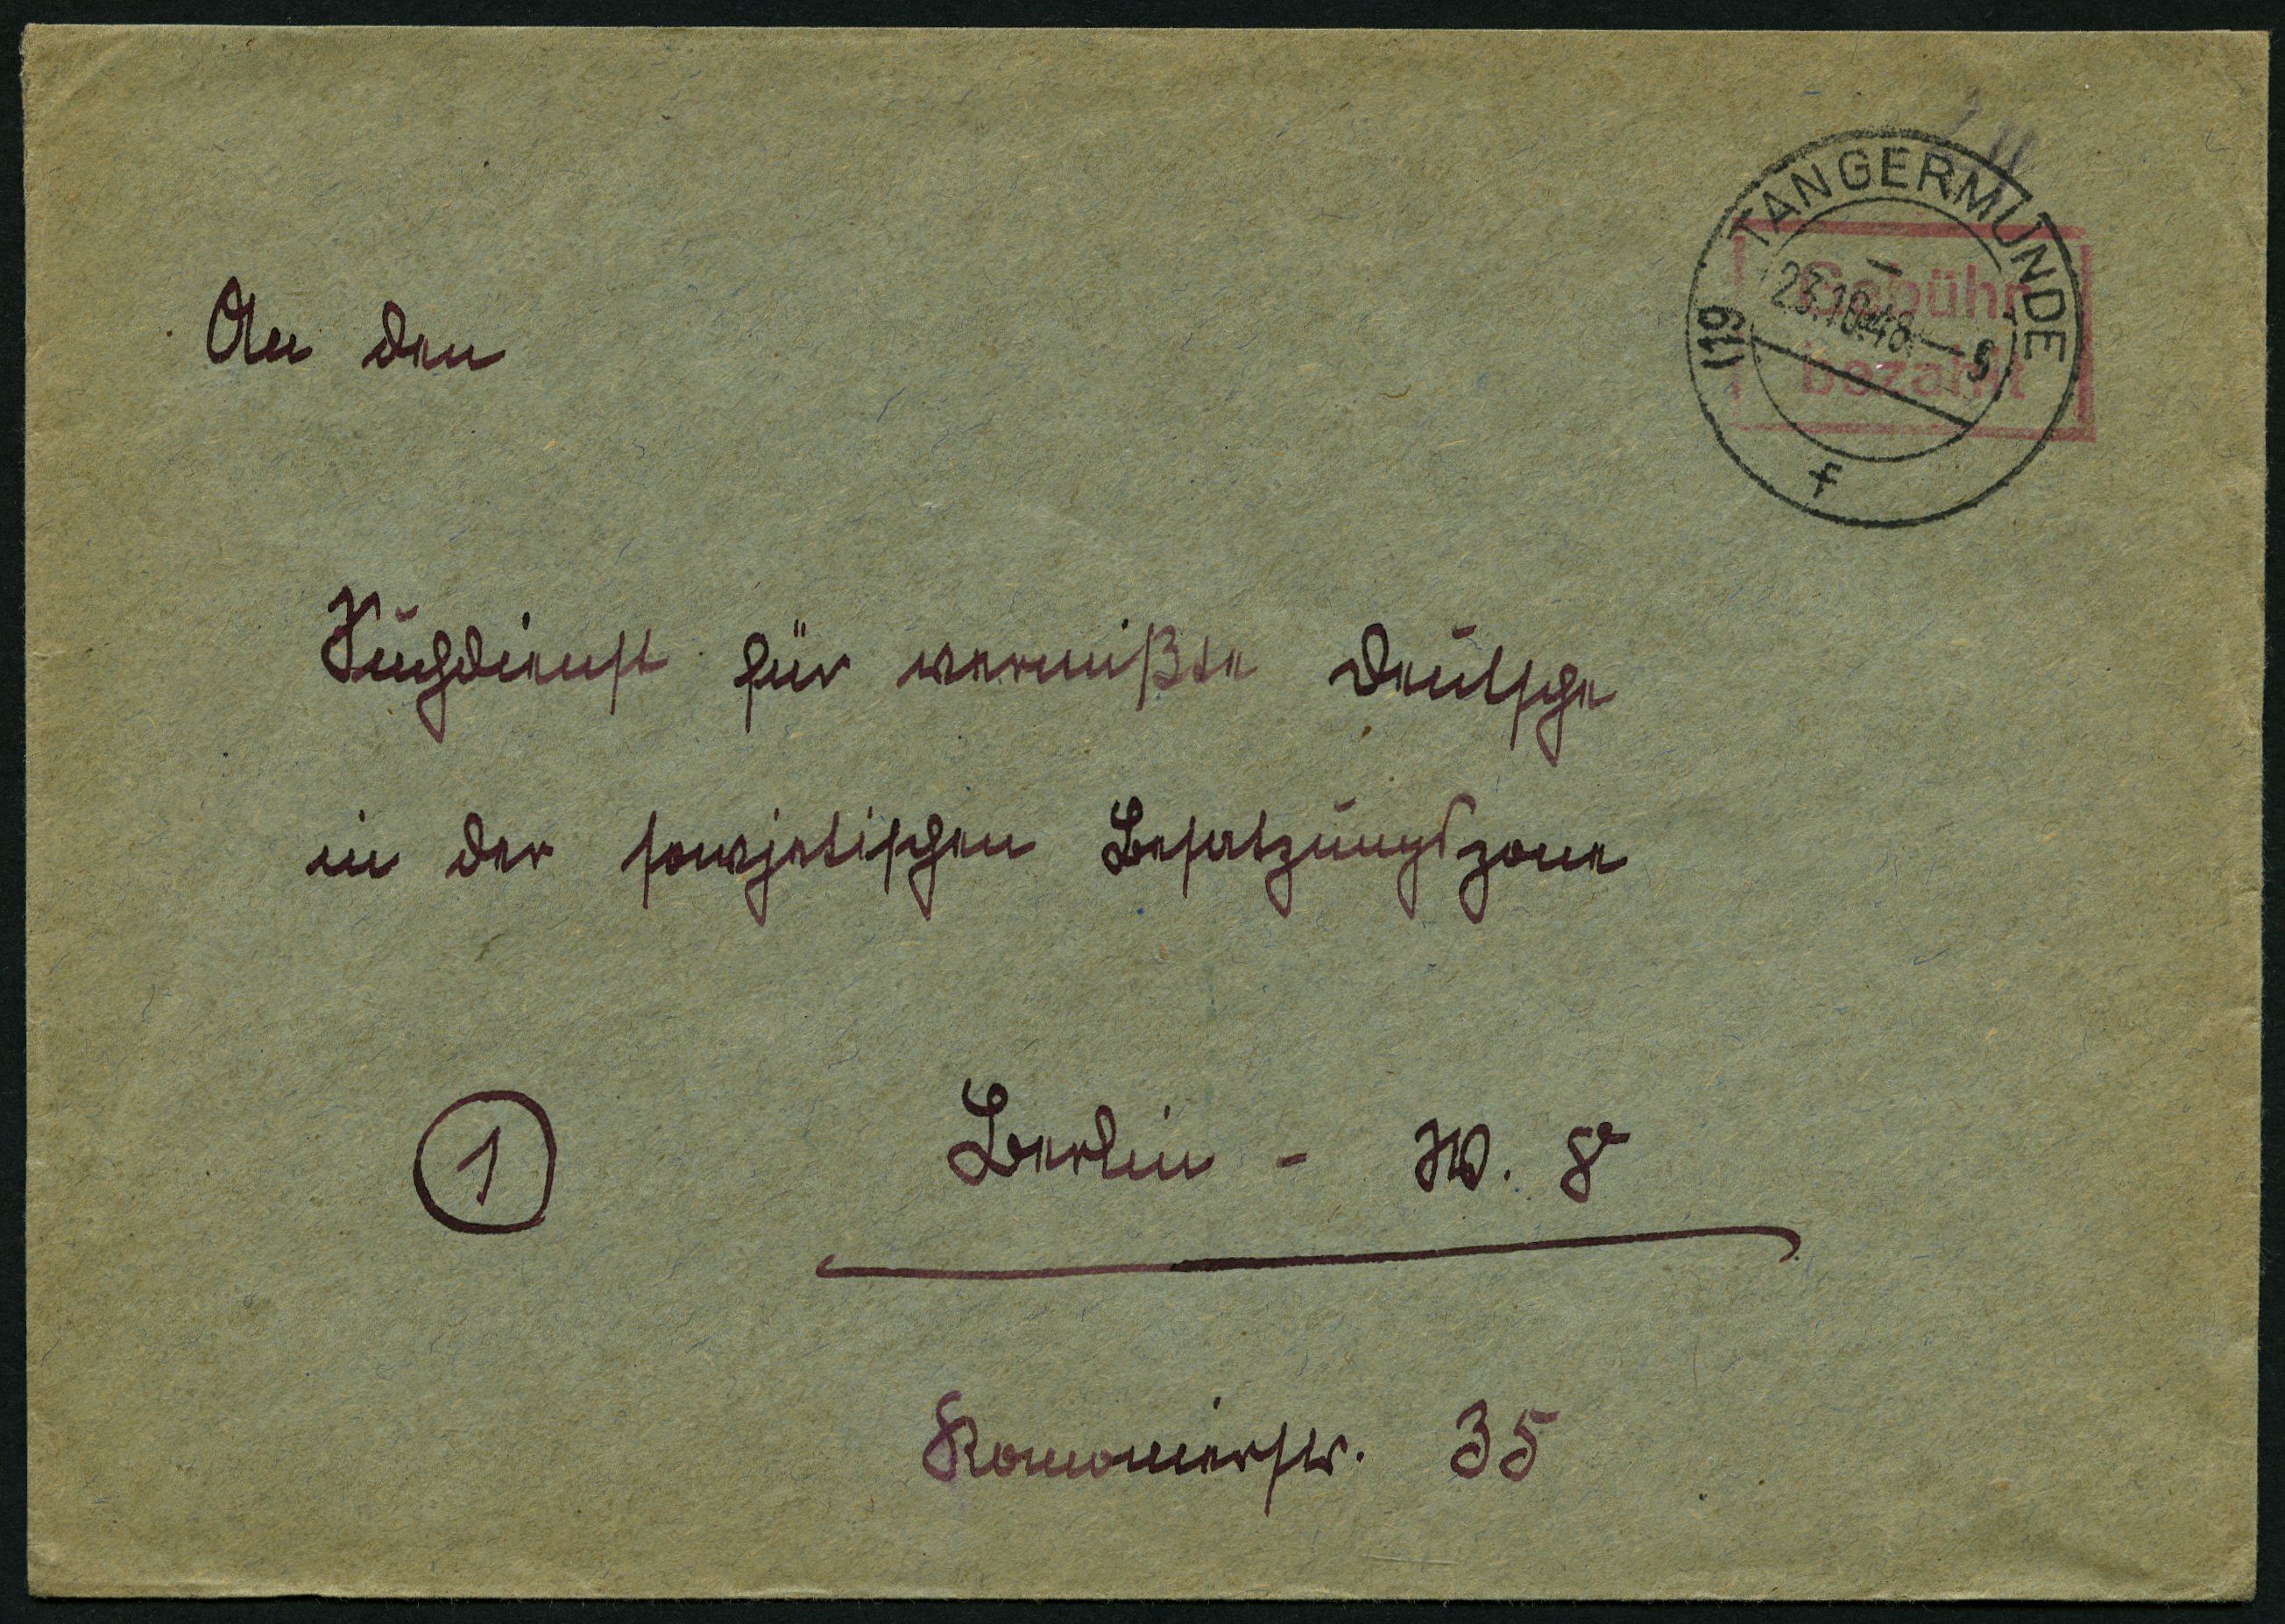 (19 TANGERMÜNDE
23.10.48.—9
f
Gebühr
bezahlt
An den
Suchdienst für vermißte Deutsche
in der sowjetischen Besatzungszone
1
Berlin - W. 8
Kanonierstr. 35